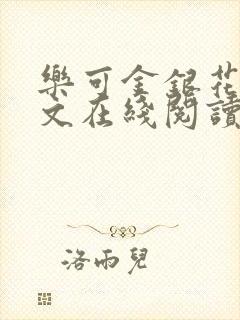 樂可金銀花
文在綫閱讀
洛雨兒